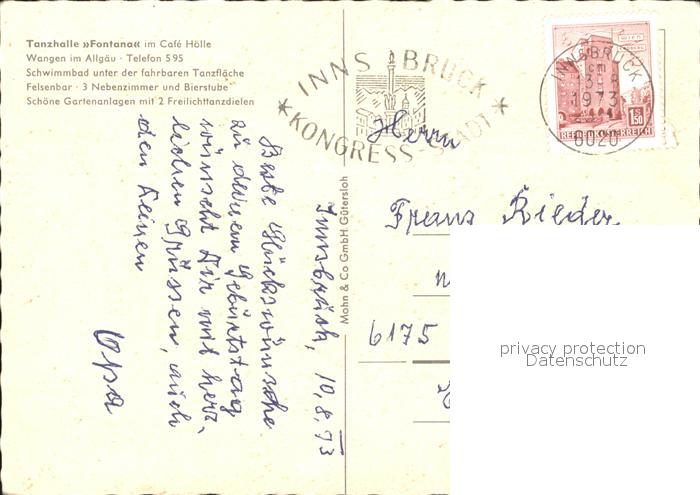 Tanzhalle »Fontana« im Café Hölle
Wangen im Allgäu · Telefon 595
Schwimmbad unter der fahrbaren Tanzfläche
Felsenbar · 3 Nebenzimmer und Bierstube
Schöne Gartenanlagen mit 2 Freilichttanzdielen
INNSBRUCK
* KONGRESS-STADT *
INNSBRUCK
13.-8
1973
6020
WIEN
1.50
REPUBLIK ÖSTERREICH
Mohn & Co GmbH Gütersloh
Innsbruck, 10.8.73
Beste Glückswünsche
zu deinem Geburtstag
wünscht Dir mit herz-
lichen Grüssen, auch
den Deinen
Opa
Herrn
Franz Rieder
6175
privacy protection
Datenschutz